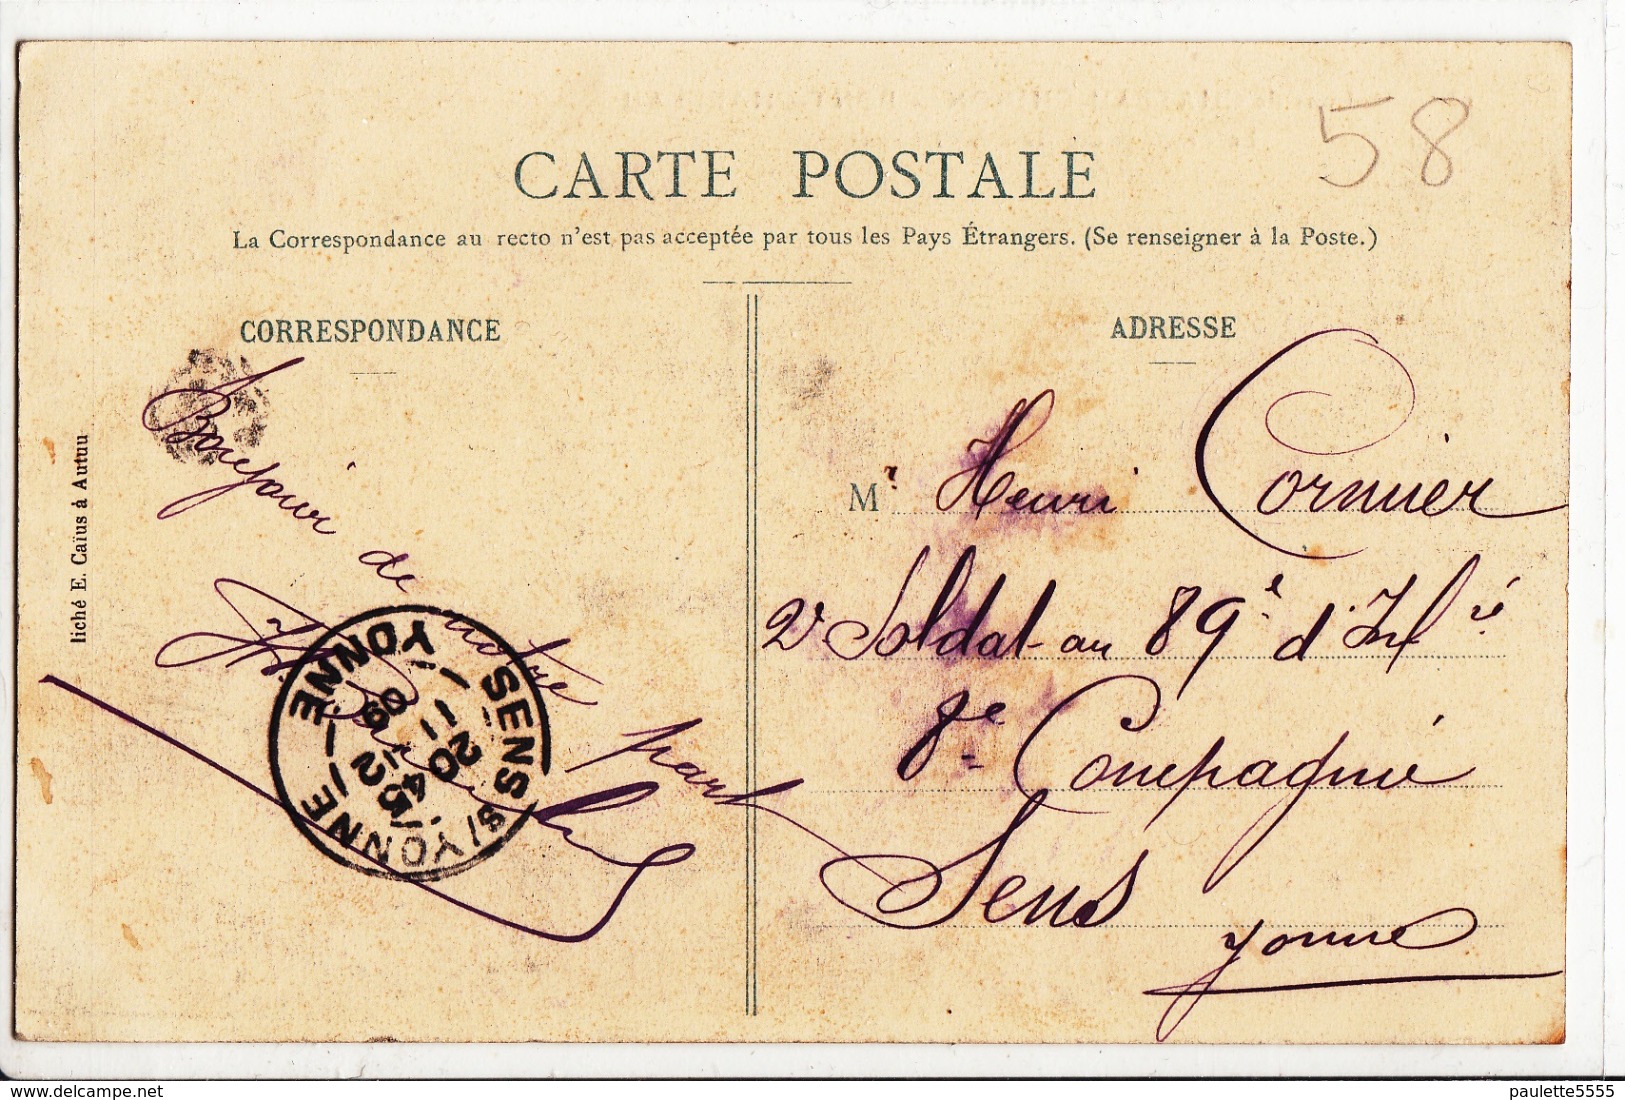 58
CARTE POSTALE
La Correspondance au recto n'est pas acceptée par tous les Pays Étrangers. (Se renseigner à la Poste.)
CORRESPONDANCE
Bonjour de
notre part
liché E. Caïus à Autuu
SENS S/YONNE
YONNE
20 -12
09
ADRESSE
Mr Henri Cornier
2e Soldat au 89e d'Infie
8e Compagnie
Sens
Yonne
paulette5555